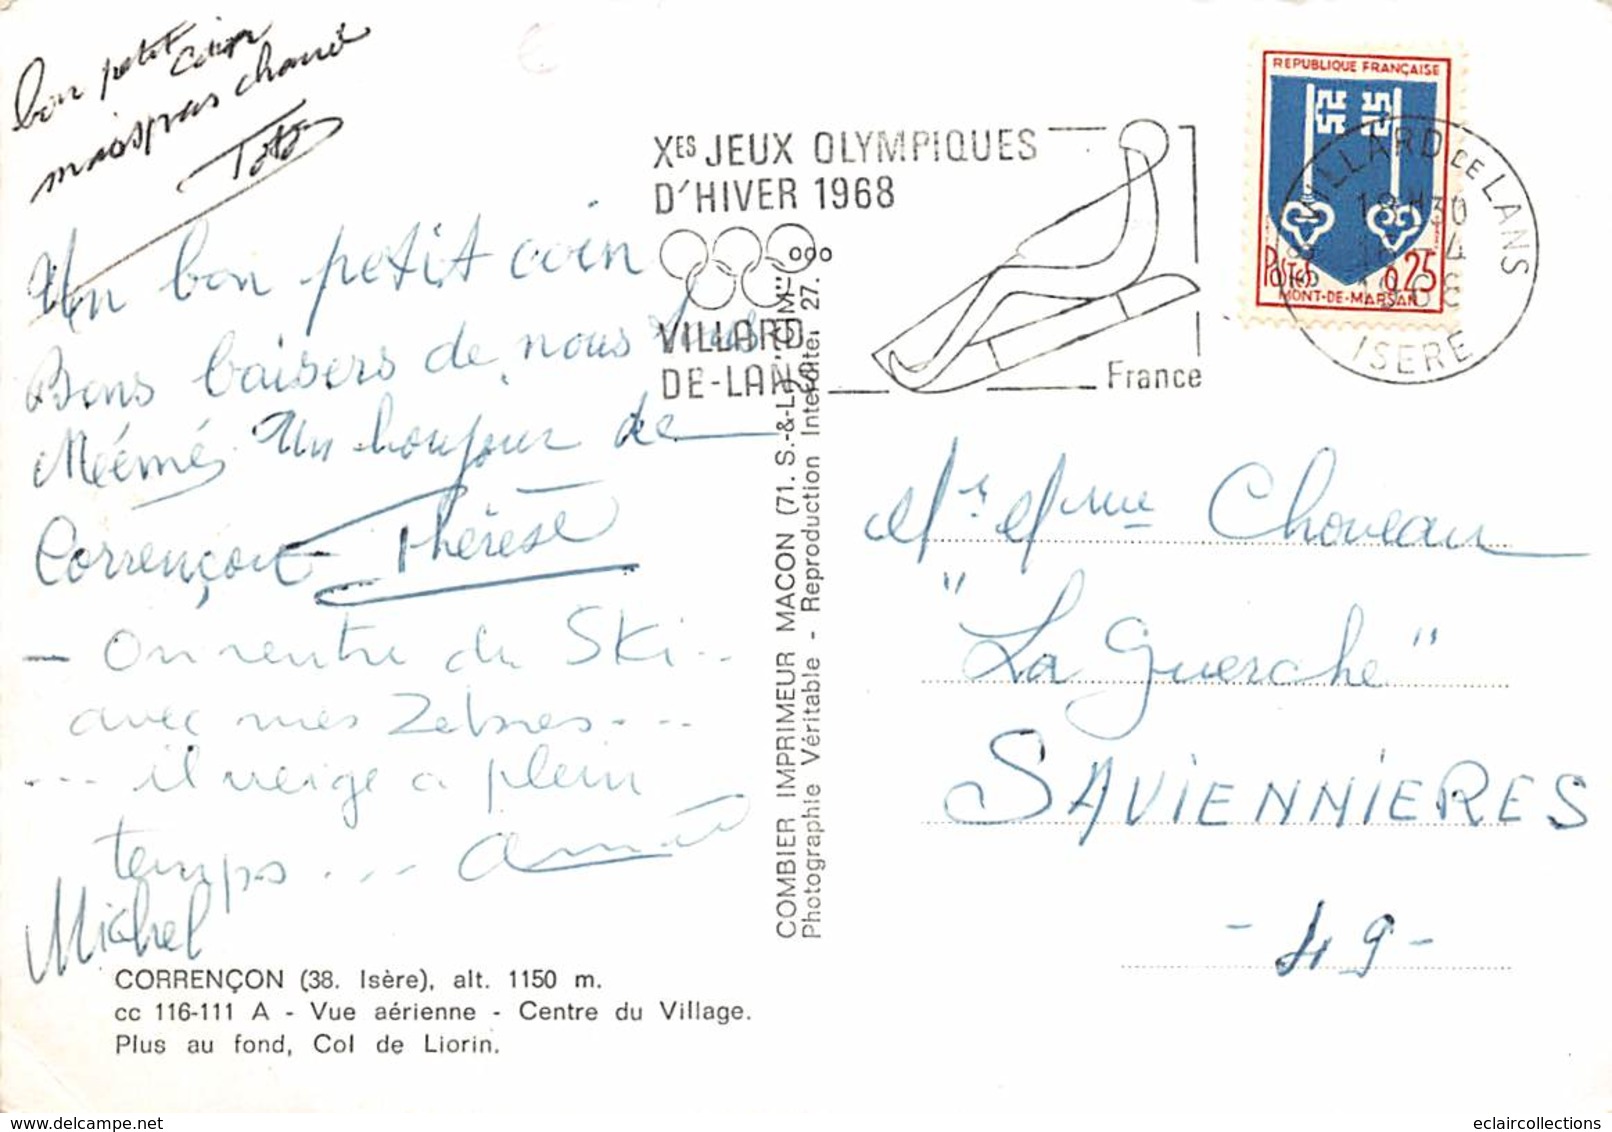 bon petit
coin
mais pas chaud
Toto
Un bon petit coin
Bons baisers de nous tous
Méémé Un bonjour de
Corrençon Thérèse
- On rentre du Ski..
avec mes Zebres...
... il neige a plein
temps ...
Michel
CORRENÇON (38. Isère), alt. 1150 m.
cc 116-111 A - Vue aérienne - Centre du Village.
Plus au fond, Col de Liorin.
COMBIER IMPRIMEUR MACON (71. S.-&-L.) "CIM"
Photographie Véritable - Reproduction Interdite. 27.
XES JEUX OLYMPIQUES
D'HIVER 1968
VILLARD
DE-LANS
France
REPUBLIQUE FRANÇAISE
POSTES 0,25
MONT-DE-MARSAN
VILLARD DE LANS
18H30
ISERE
Mr Mme Choveau
"La Guerche"
SAVIENNIERES
- 49 -
eclaircollections